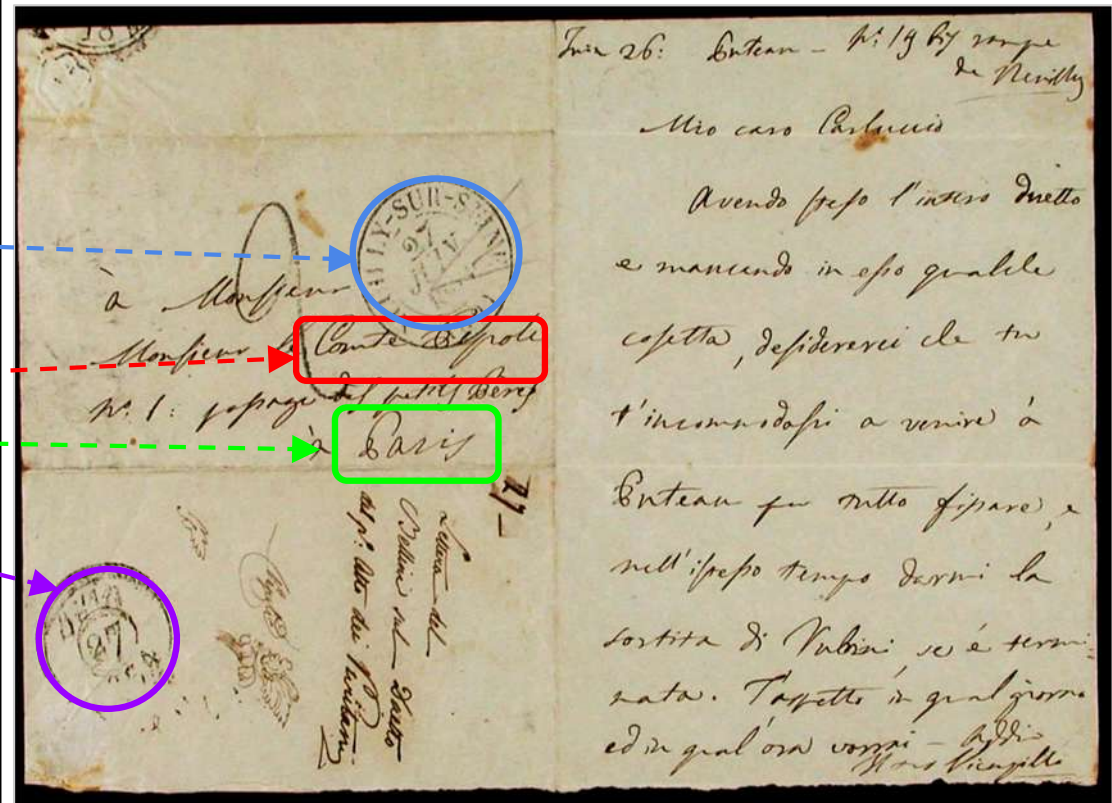 27
JUIN
LLY-SUR-SEINE
à Monsieur
Monsieur le Comte Pepoli
nº. 1: passage des petits Peres
à Paris
27
Lettera del
Bellini sul Duetto
del pº. Atto dei Puritani
Juin 26: Puteau - nº: 19 bis rampe
de Neuilly
Mio caro Carluccio
Avendo steso l'intero duetto
e mancando in esso qualche
cosetta, desidererei che tu
t'incommodassi a venire à
Puteau per tutto fissare, e
nell'istesso tempo darmi la
sortita di Rubini, se è termi-
nata. T'aspetto in qual giorno
ed in qual'ora vorrai - Addio